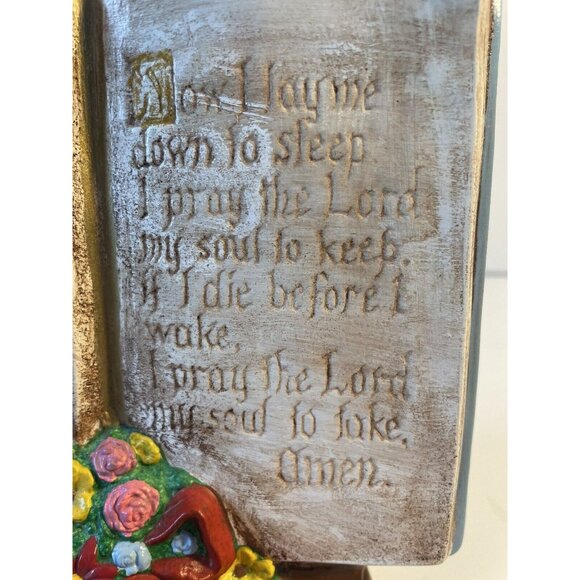 Now I lay me
down to sleep
I pray the Lord
my soul to keep.
If I die before I
wake,
I pray the Lord
my soul to take.
Amen.